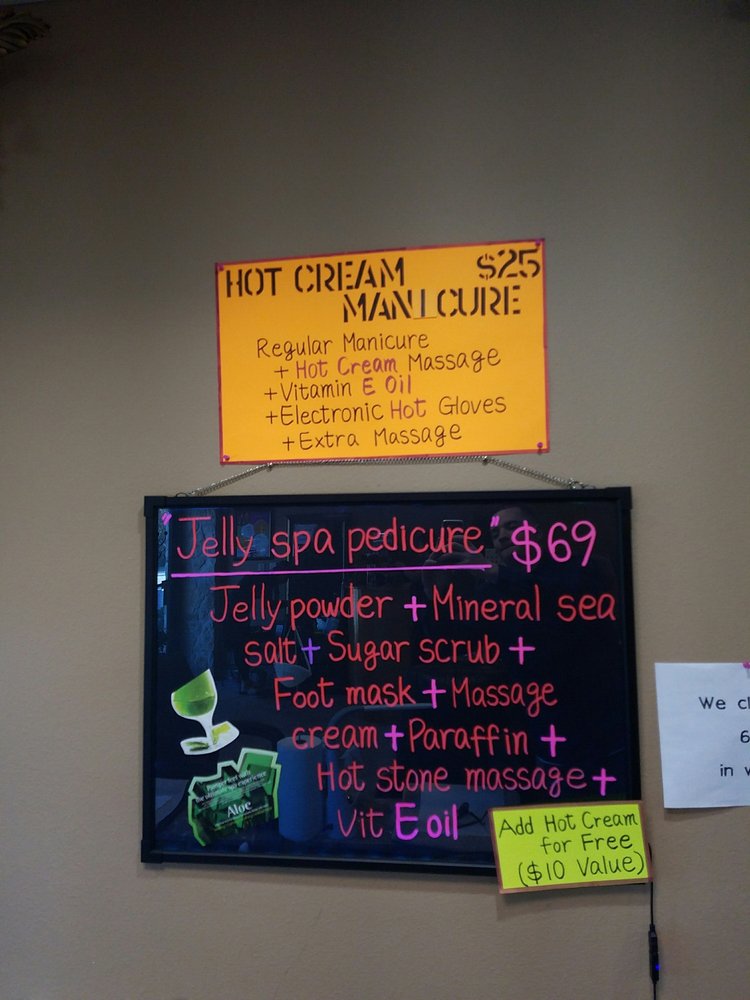 HOT CREAM $25
MANICURE
Regular Manicure
+ Hot Cream Massage
+Vitamin E Oil
+Electronic Hot Gloves
+Extra Massage
"Jelly spa pedicure" $69
Jelly powder + Mineral sea
salt + Sugar scrub +
Foot mask + Massage
cream + Paraffin +
Hot stone massage +
Vit E oil
the ultimate spa experience
Aloe
Add Hot Cream
for Free
($10 Value)
We cl
6
in w